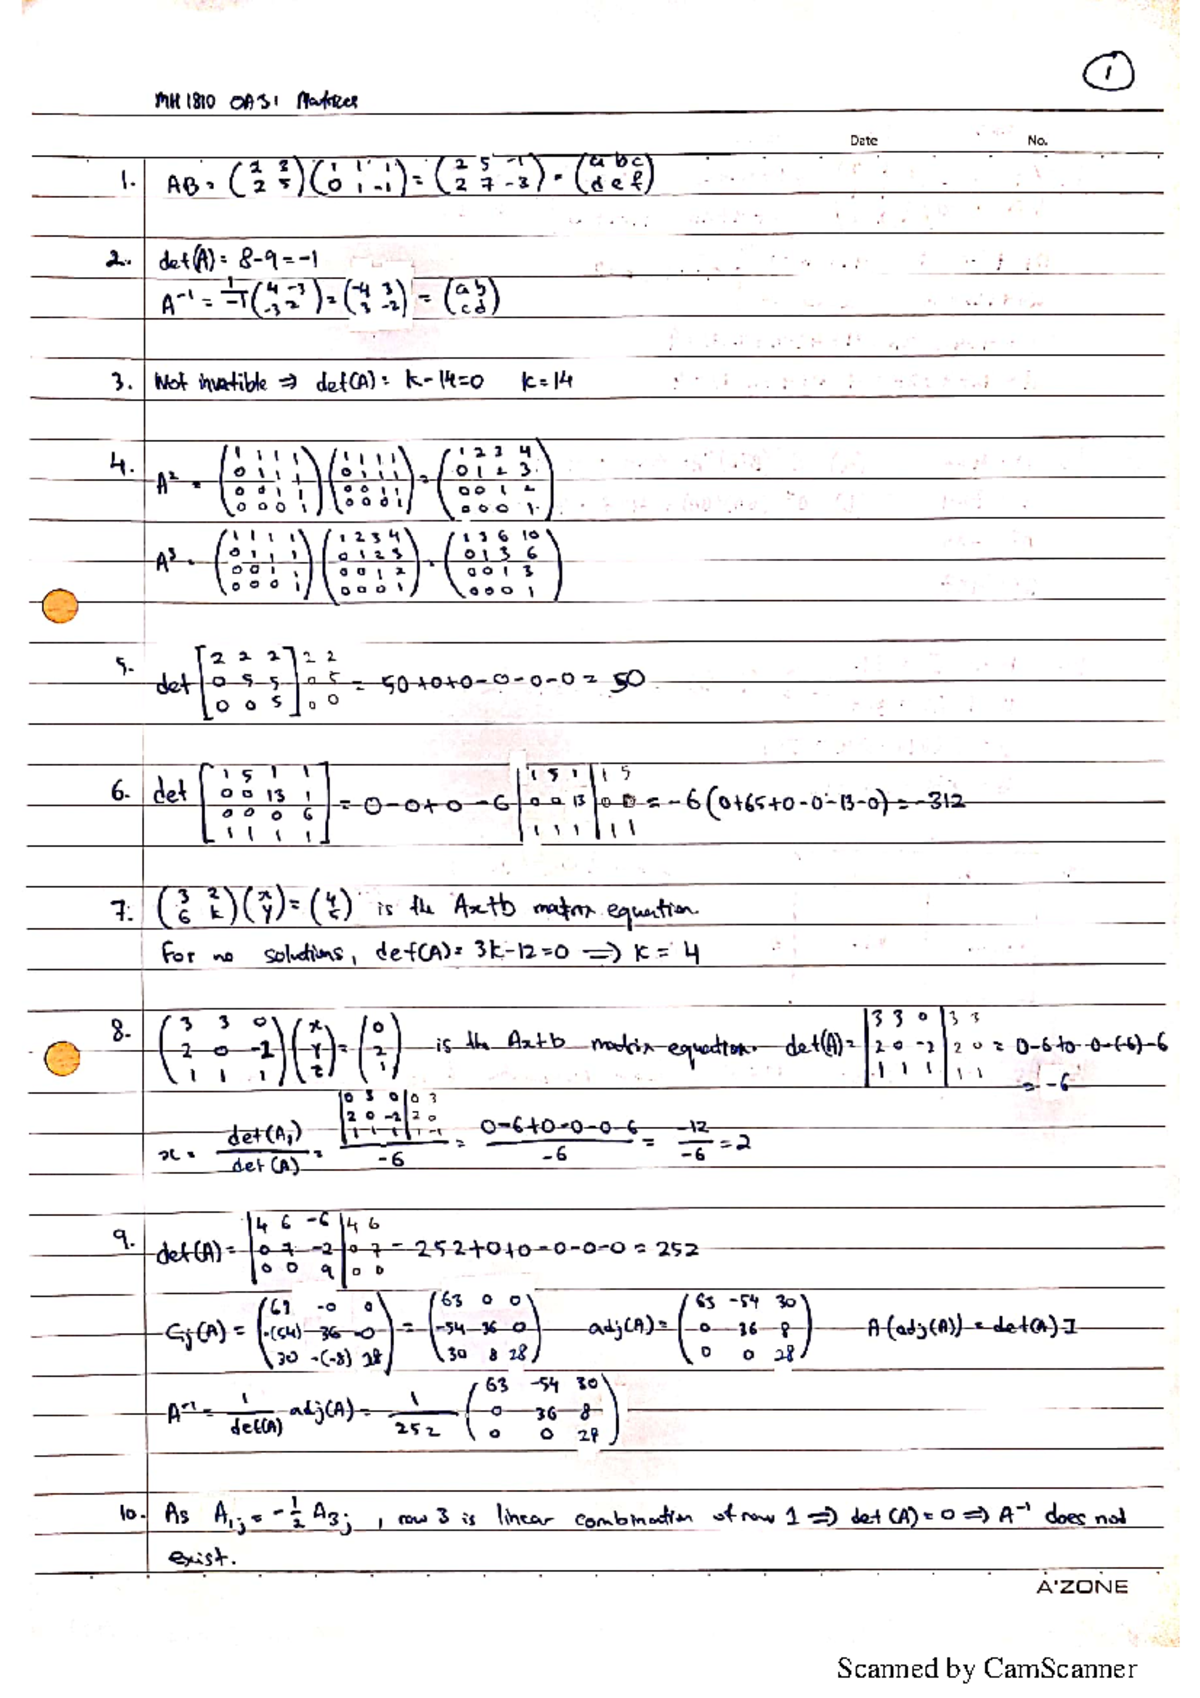 1
MH1810 OAS1 Matrices
Date No.
1. AB = (2 3; 2 5)(1 1 1; 0 1 -1) = (2 5 -1; 2 7 -3) = (a b c; d e f)
2. det(A) = 8-9 = -1
A⁻¹ = 1/-1 (4 -3; -3 2) = (-4 3; 3 -2) = (a b; c d)
3. Not invertible ⇒ det(A) = k-14=0 k=14
4. A² = (1 1 1 1; 0 1 1 1; 0 0 1 1; 0 0 0 1)(1 1 1 1; 0 1 1 1; 0 0 1 1; 0 0 0 1) = (1 2 3 4; 0 1 2 3; 0 0 1 2; 0 0 0 1)
A³ = (1 1 1 1; 0 1 1 1; 0 0 1 1; 0 0 0 1)(1 2 3 4; 0 1 2 3; 0 0 1 2; 0 0 0 1) = (1 3 6 10; 0 1 3 6; 0 0 1 3; 0 0 0 1)
5. det [2 2 2; 0 5 5; 0 0 5] 2 2; 0 5; 0 0 = 50+0+0-0-0-0 = 50
6. det [1 5 1 1; 0 0 13 1; 0 0 0 6; 1 1 1 1] = 0-0+0-6 |1 5 1; 0 0 13; 1 1 1| 1 5; 0 0; 1 1 = -6(0+65+0-0-13-0) = -312
7. (3 2; 6 k)(x; y) = (4; 5) is the Ax+b matrix equation.
For no solutions, det(A) = 3k-12=0 ⇒ k = 4
8. (3 3 0; 2 0 -2; 1 1 1)(x; y; z) = (0; 2; 1) is the Ax+b matrix equation. det(A) = |3 3 0; 2 0 -2; 1 1 1| 3 3; 2 0; 1 1 = 0-6+0-0-(-6)-6
= -6
x = det(A₁)/det(A) = |0 3 0; 2 0 -2; 1 1 1| 0 3; 2 0; 1 -1 / -6 = 0-6+0-0-0-6 / -6 = -12/-6 = 2
9. det(A) = |4 6 -6; 0 7 -2; 0 0 9| 4 6; 0 7; 0 0 = 252+0+0-0-0-0 = 252
Cij(A) = (63 -0 0; -(54) 36 -0; 30 -(-8) 28) = (63 0 0; -54 36 0; 30 8 28) adj(A) = (63 -54 30; 0 36 8; 0 0 28) A(adj(A)) = det(A) I
A⁻¹ = 1/det(A) adj(A) = 1/252 (63 -54 30; 0 36 8; 0 0 28)
10. As A₁j = -1/2 A₃j , row 3 is linear combination of row 1 ⇒ det(A) = 0 ⇒ A⁻¹ does not
exist.
A'ZONE
Scanned by CamScanner